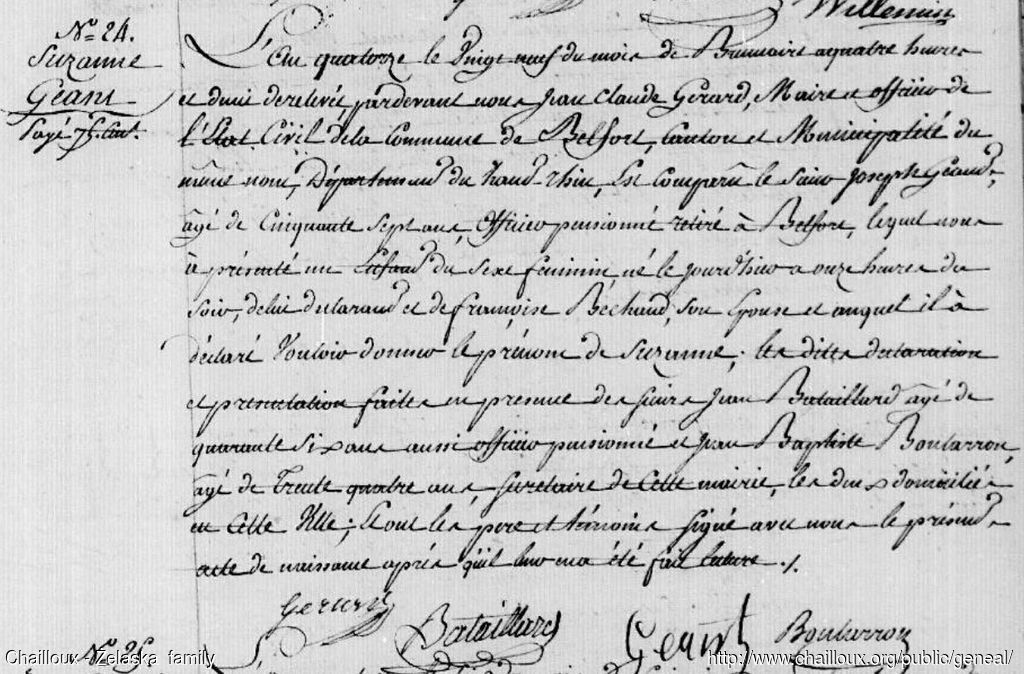 Willemin
N.º 24.
Suzanne
Géant
Payé 75 Cent.
L'An quatorze le vingt neuf du mois de Brumaire a quatre heures
et demi de relevée, pardevant nous Jean Claude Gérard, Maire et officier de
l'Etat Civil de la Commune de Belfort, Canton et Municipalité du
même nom, Département du haut Rhin, Est comparu le sieur Joseph Géant,
âgé de Cinquante Sept ans, Officier pensionné retiré à Belfort, lequel nous
à présenté un Enfant du Sexe feminin né le jour d'hier a onze heures du
soir, de lui déclarant et de françoise Béchaud, son Epouse et auquel il à
déclaré Vouloir donner le prénom de Suzanne; les dittes declaration
et presentation faites en presence des sieurs Jean Bataillard âgé de
quarante six ans aussi officier pensionné et Jean Baptiste Boutarron,
âgé de Trente quatre ans, Secretaire de Cette mairie, les deux domiciliés
en Cette Ville; Et ont les pere et témoins signé avec nous le présent
acte de naissance après qu'il leur en a été fait lecture ./.
Gerard Bataillard Géant Boutarron
N.º 25
L'
Chailloux - Zelaska family
http://www.chailloux.org/public/geneal/